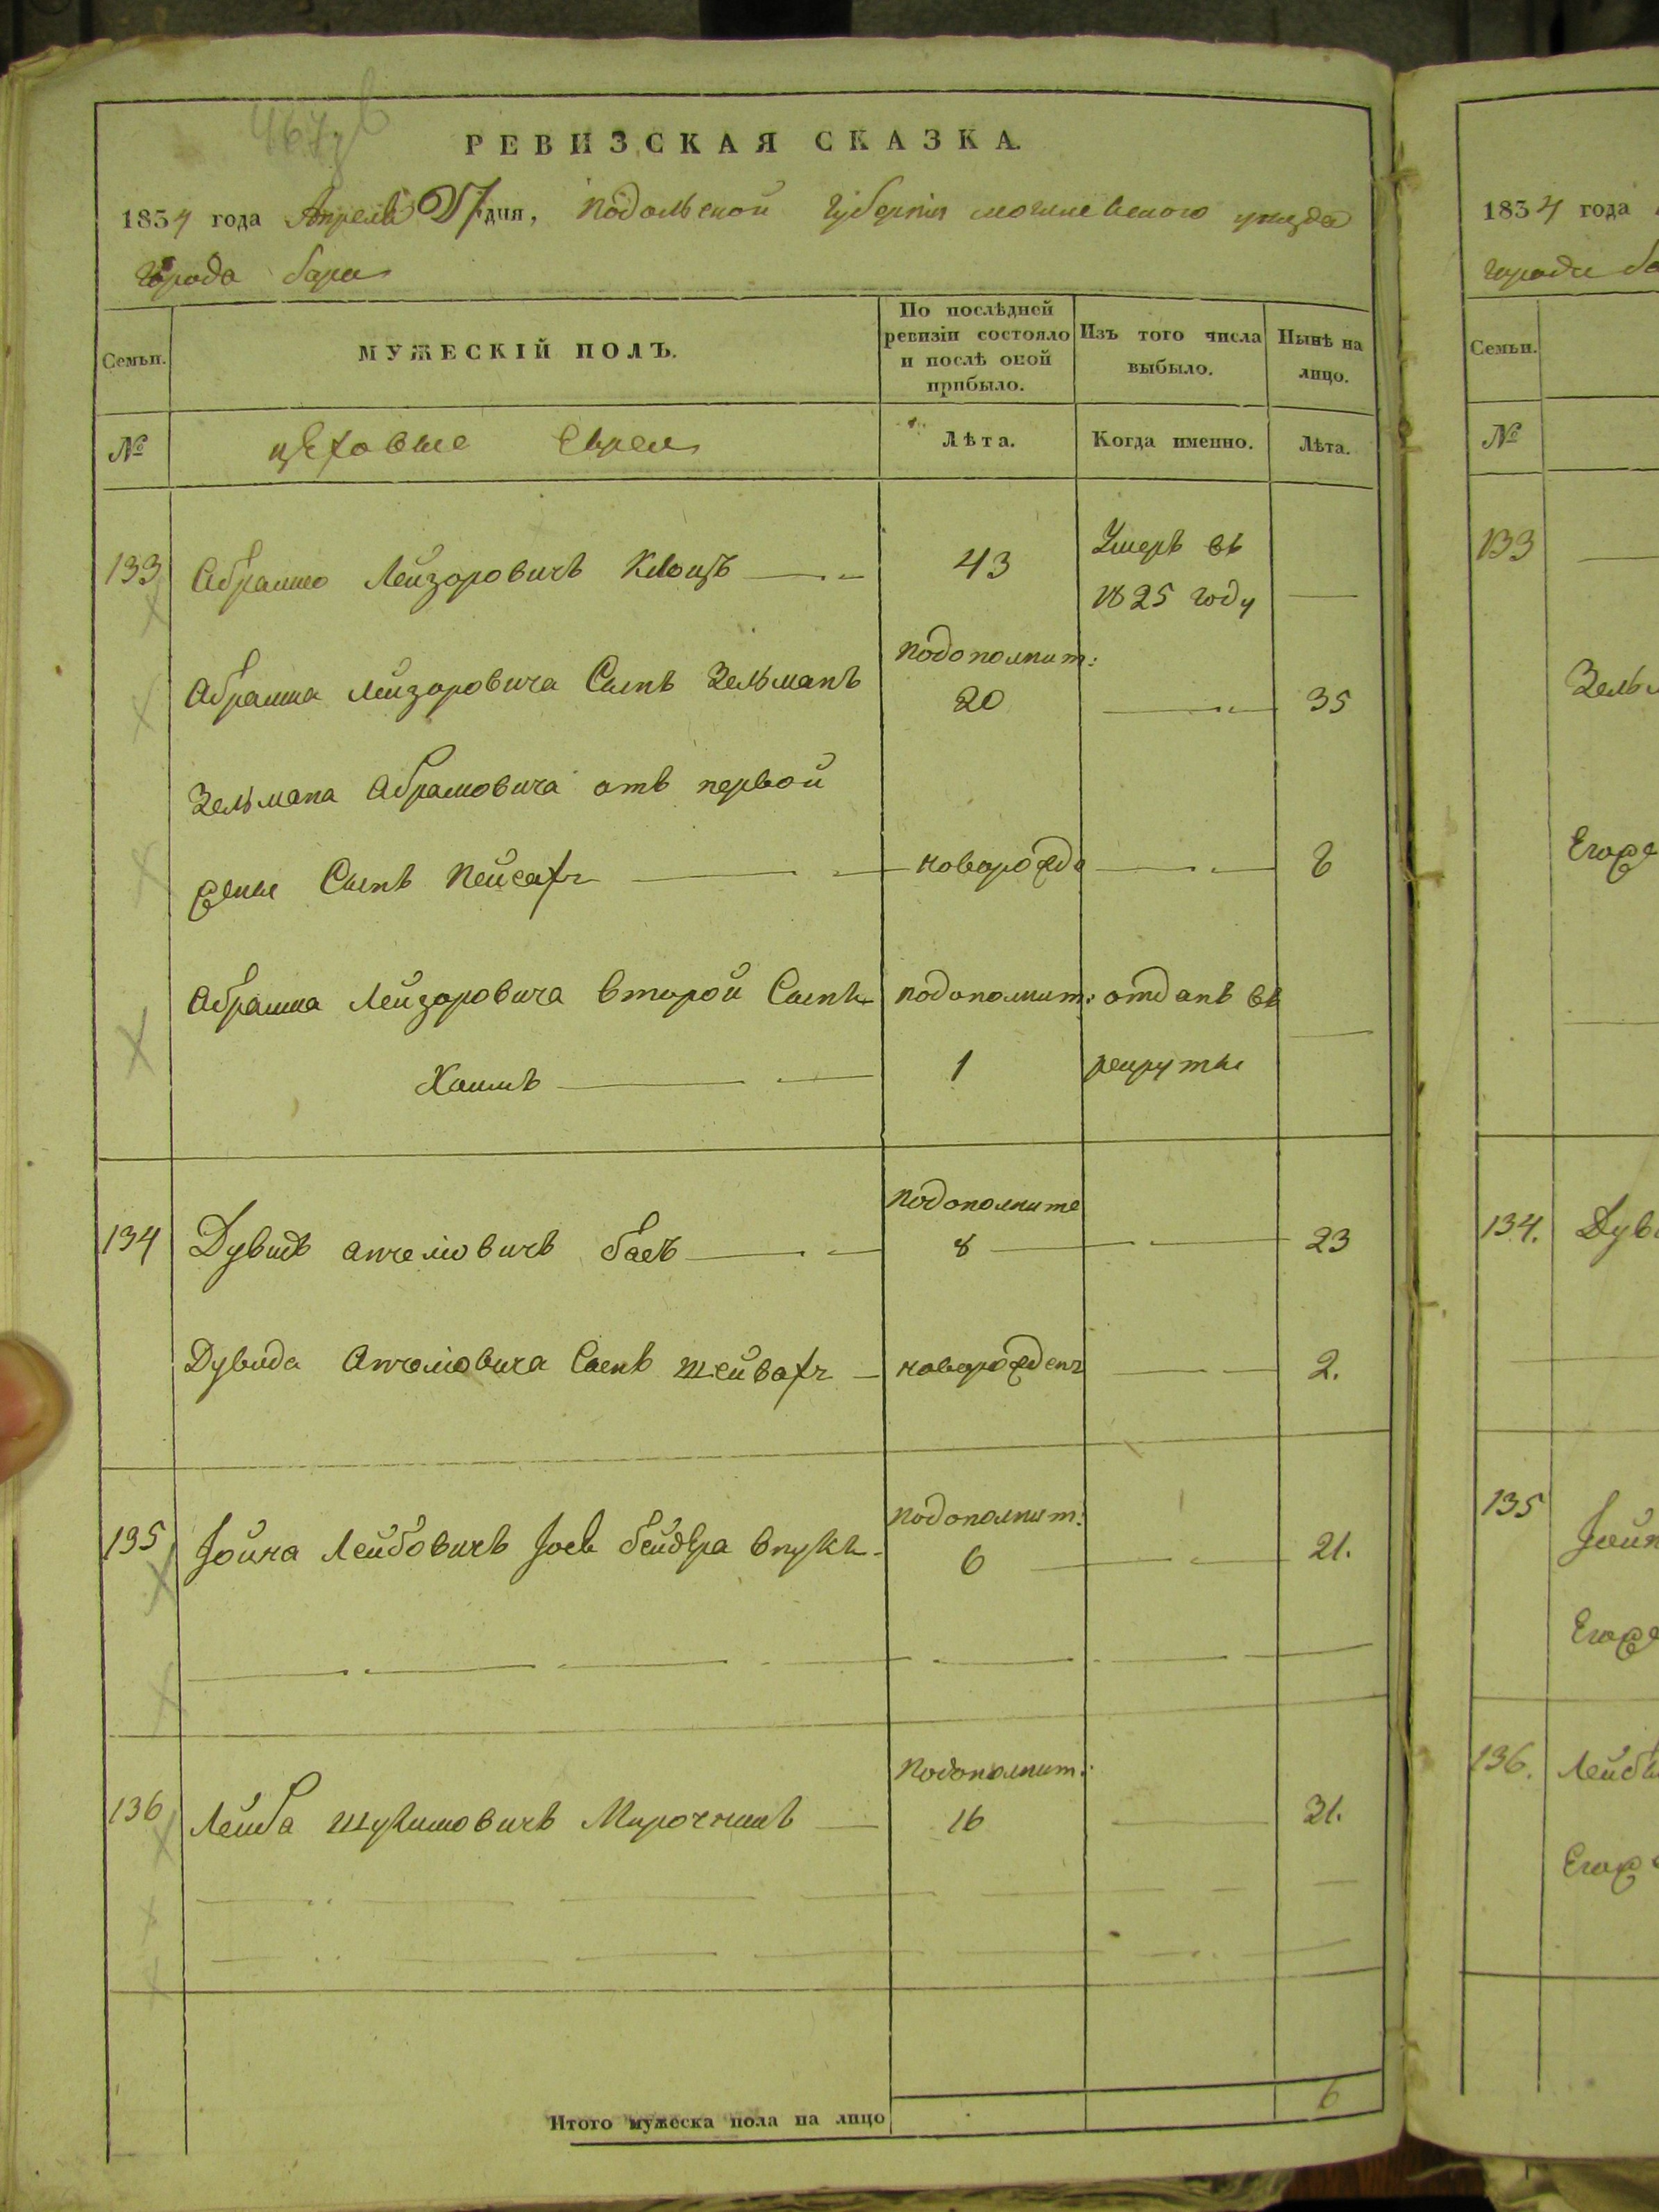 РЕВИЗСКАЯ СКАЗКА.
1834 года Апреля 27 дня, подольской губернии могилевского уезда
города бара
Семьи.
МУЖЕСКІЙ ПОЛЪ.
По послѣдней ревизіи состояло и послѣ оной прибыло.
Изъ того числа выбыло.
Нынѣ на лицо.
№
цѣховые Евреи
Лѣта.
Когда именно.
Лѣта.
133 Абрамко Лейзоровичъ Клоцъ 43 Умеръ въ
1825 году
Абрамка Лейзоровича Сынъ Зельманъ подополнит: 20 35
Зельмана Абрамовича отъ первой
жены Сынъ Пейсахъ новорожде 8
Абрамка Лейзоровича второй Сынъ подополнит: отданъ въ
Хаимъ 1 рекруты
134 Дувидъ басъ подополните 8 23
Дувида Сынъ Шейвахъ новорожденъ 2.
135 Іойна Лейбовичъ Іосъ бейдера внукъ подополнит: 6 21.
136 Лейба Мирочникъ подополнит: 16 31.
Итого мужеска пола на лицо 6
1834 года
городе ба
Семьи.
№
133
Зельм
Егоже
134. Дуви
135 Іойн
Егоже
136. Лейбы
Егоже